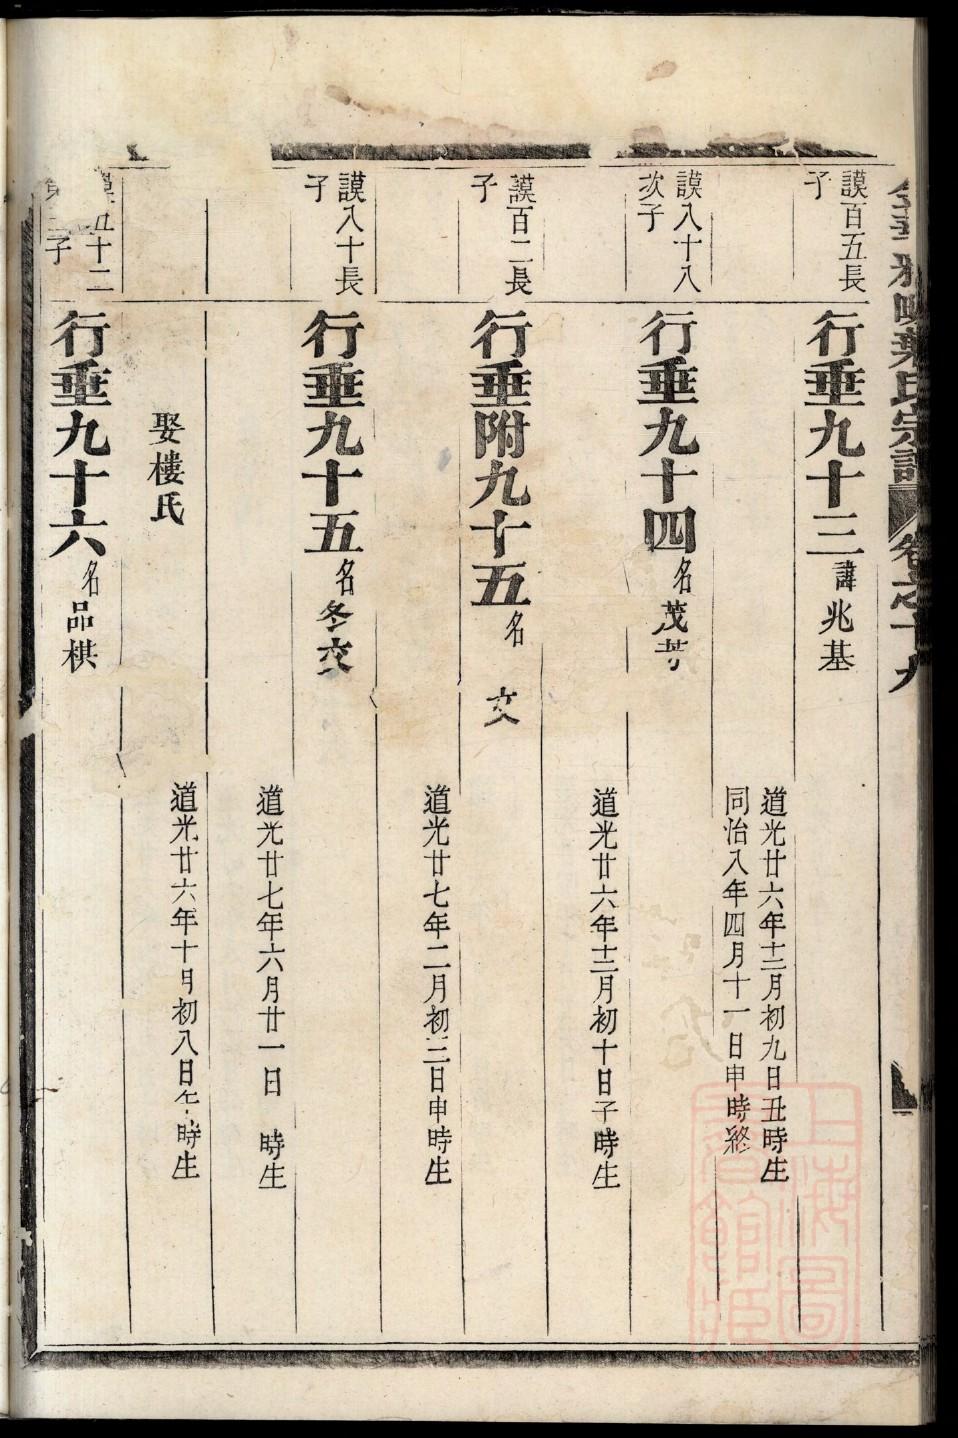 葉氏宗譜 卷之十九
謨百五長子
行垂九十三 諱兆基
道光廿六年十二月初九日丑時生
同治八年四月十一日申時終
謨八十八次子
行垂九十四 名茂芳
道光廿六年十二月初十日子時生
謨百二長子
行垂附九十五 名 文
道光廿七年二月初三日申時生
謨八十長子
行垂九十五 名冬文
道光廿七年六月廿一日 時生
娶樓氏
道光廿六年十月初八日午時生
謨五十二 子
行垂九十六 名品棋
上海圖書館藏